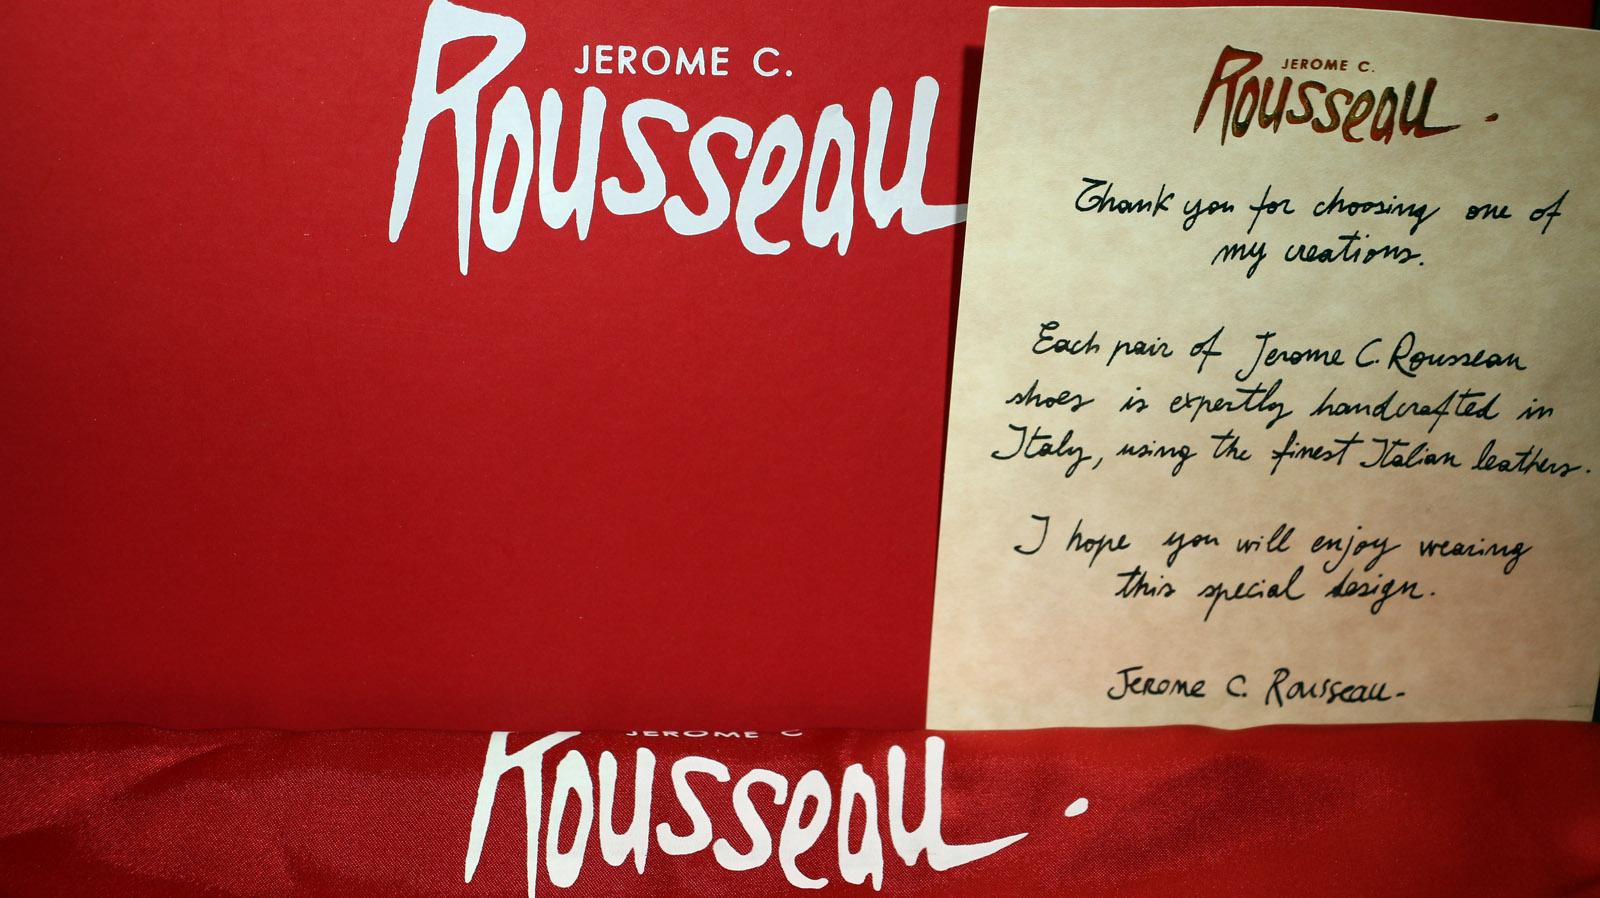 JEROME C.
Rousseau
JEROME C.
Rousseau.
Thank you for choosing one of
my creations.
Each pair of Jerome C. Rousseau
shoes is expertly handcrafted in
Italy, using the finest Italian leathers.
I hope you will enjoy wearing
this special design.
Jerome C. Rousseau-
JEROME C
Rousseau.